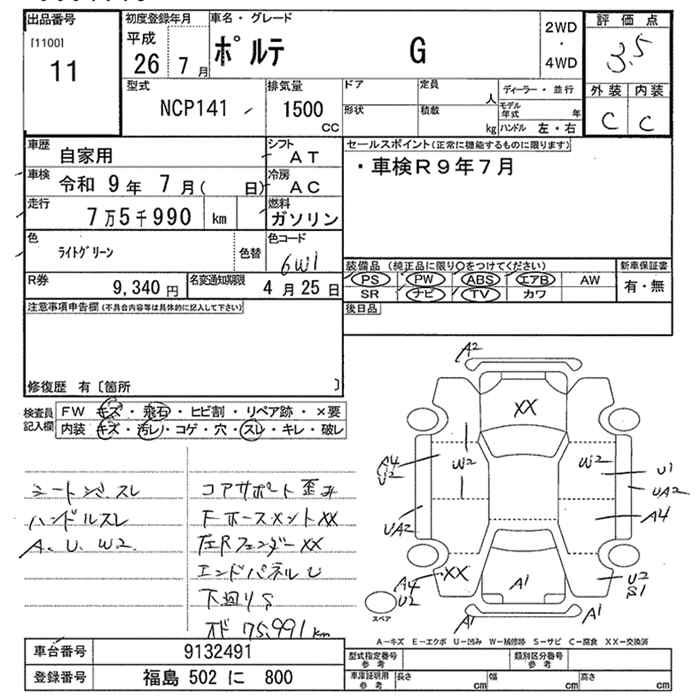 出品番号
[1100]
11
初度登録年月
平成
26 7月
車名・グレード
ポルテ G
2WD
・
4WD
評価点
3.5
外装 内装
C C
型式
NCP141
排気量
1500
CC
ドア
形状
定員
人
積載
kg
ディーラー・並行
モデル年式 年
ハンドル 左・右
車歴
自家用
シフト
AT
車検
令和 9年 7月( 日)
冷房
AC
走行
7万5千990 km
燃料
ガソリン
色
ライトグリーン
色替
色コード
6W1
R券
9,340 円
名変通知期限
4月25日
セールスポイント(正常に機能するものに限ります)
・車検R9年7月
装備品 (純正品に限り○をつけてください)
PS PW ABS エアB AW
SR ナビ TV カワ
新車保証書
有・無
後日品
注意事項申告欄(不具合内容等は具体的に記入して下さい)
修復歴 有〔箇所 〕
検査員記入欄
FW キズ・飛石・ヒビ割・リペア跡・×要
内装 キズ・汚レ・コゲ・穴・スレ・キレ・破レ
ハンドルスレ
A、U、W2
コアサポート歪み
Fホースメント XX
左Rフェンダー XX
エンドパネル U
下廻りS
オド 75,991km
A2
XX
A4
U2
W2
W2
U1
UA2
UA2
A4
A4
U2
XX
A1
U2
S1
A1
A1
スペア
A-キズ E-エクボ U-凹み W-補修跡 S-サビ C-腐食 XX-交換済
車台番号
9132491
登録番号
福島 502 に 800
型式指定番号
参考
類別区分番号
参考
車庫証明用
参考
長さ cm
幅 cm
高さ cm